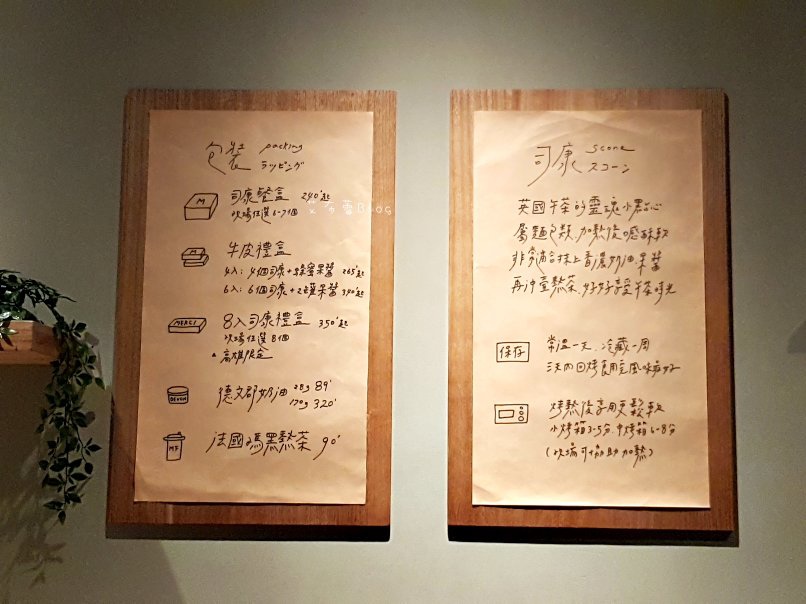 包裝 packing
ラッピング
M
司康餐盒 240'起
現場任選6-7個
艾布蕾BLOG
牛皮禮盒
4入: 4個司康+蜂蜜果醬 265'起
6入: 6個司康+2罐果醬 390'起
MERCI
8入司康禮盒 350'起
現場任選8個
高雄限定
DEVON
德文郡奶油 28g 89'
170g 320'
MF
法國瑪黑熱茶 90'
司康 scone
スコーン
英國午茶的靈魂小點心
屬麵包類,加熱後口感酥軟
非常適合抹上香濃奶油果醬
再沖壺熱茶,好好享受午茶時光
保存
常溫一天、冷藏一周
三天內回烤食用完風味最好
烤熱後享用更鬆軟
小烤箱3-5分、中烤箱6-8分
(現場可協助加熱)